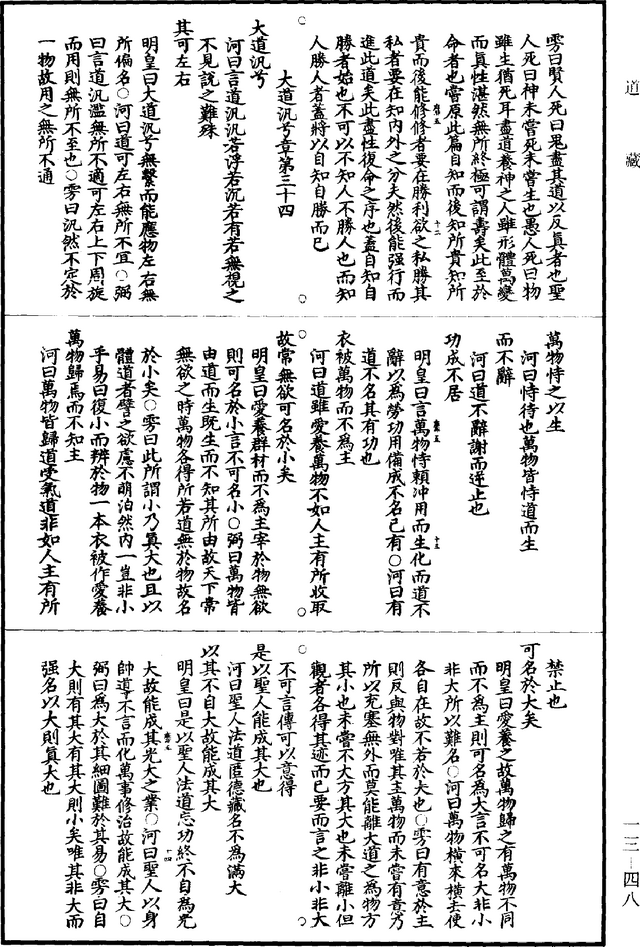 道藏
雱曰賢人死曰鬼盡其道以反真者也聖
人死曰神未嘗死未嘗生也愚人死曰物
雖生猶死耳盡道養神之人雖形體萬變
而真性湛然無所終極可謂壽矣此至於
命者也嘗原此篇自知而後知所貴知所
貴而後能修修者要在勝利欲之私勝其
私者要在知內外之分夫然後能强行而
進此道矣此盡性復命之序也蓋自知自
勝者始也不可以不知人不勝人也而知
人勝人者蓋將以自知自勝而已
大道汎兮章第三十四
大道汎兮
河曰言道汎汎若浮若沉若有若無視之
不見說之難殊
其可左右
明皇曰大道汎兮無繫而能應物左右無
所偏名○河曰道可左右無所不宜○弼
曰言道汎濫無所不適可左右上下周旋
而用則無所不至也○雱曰汎然不定於
一物故用之無所不通
萬物恃之以生
河曰恃待也萬物皆恃道而生
而不辭
河曰道不辭謝而逆止也
功成不居
明皇曰言萬物恃賴冲用而生化而道不
辭以爲勞功用備成不名已有○河曰有
道不名其有功也
衣被萬物而不爲主
河曰道雖愛養萬物不如人主有所收取
故常無欲可名於小矣
明皇曰愛養群材而不爲主宰於物無欲
則可名於小言不可名小○弼曰萬物皆
由道而生既生而不知其所由故天下常
無欲之時萬物各得所若道無於物故名
於小矣○雱曰此所謂小乃真大也且以
體道者譬之欲慮不萌泊然內一豈非小
乎易曰復小而辨於物一本衣被作愛養
萬物歸焉而不知主
河曰萬物皆歸道受氣道非如人主有所
禁止也
可名於大矣
明皇曰愛養之故萬物歸之有萬物不同
而不爲主則可名爲大言不可名大非小
非大所以難名○河曰萬物橫來橫去使
各自在故不若於大也○雱曰有意於主
則反與物對唯其主萬物而未嘗有意乃
所以充塞無外而莫能離大道之爲物方
其小也未嘗不大方其大也未嘗離小但
觀者各得其迹而已要而言之非小非大
不可言傳可以意得
是以聖人能成其大也
河曰聖人法道匿德藏名不爲滿大
以其不自大故能成其大
明皇曰是以聖人法道忘功終不自爲光
大故能成其光大之業○河曰聖人以身
帥導不言而化萬事修治故能成其大○
弼曰爲大於其細圖難於其易○雱曰自
大則有其大有其大則小矣唯其非大而
强名以大則真大也
一三—四八